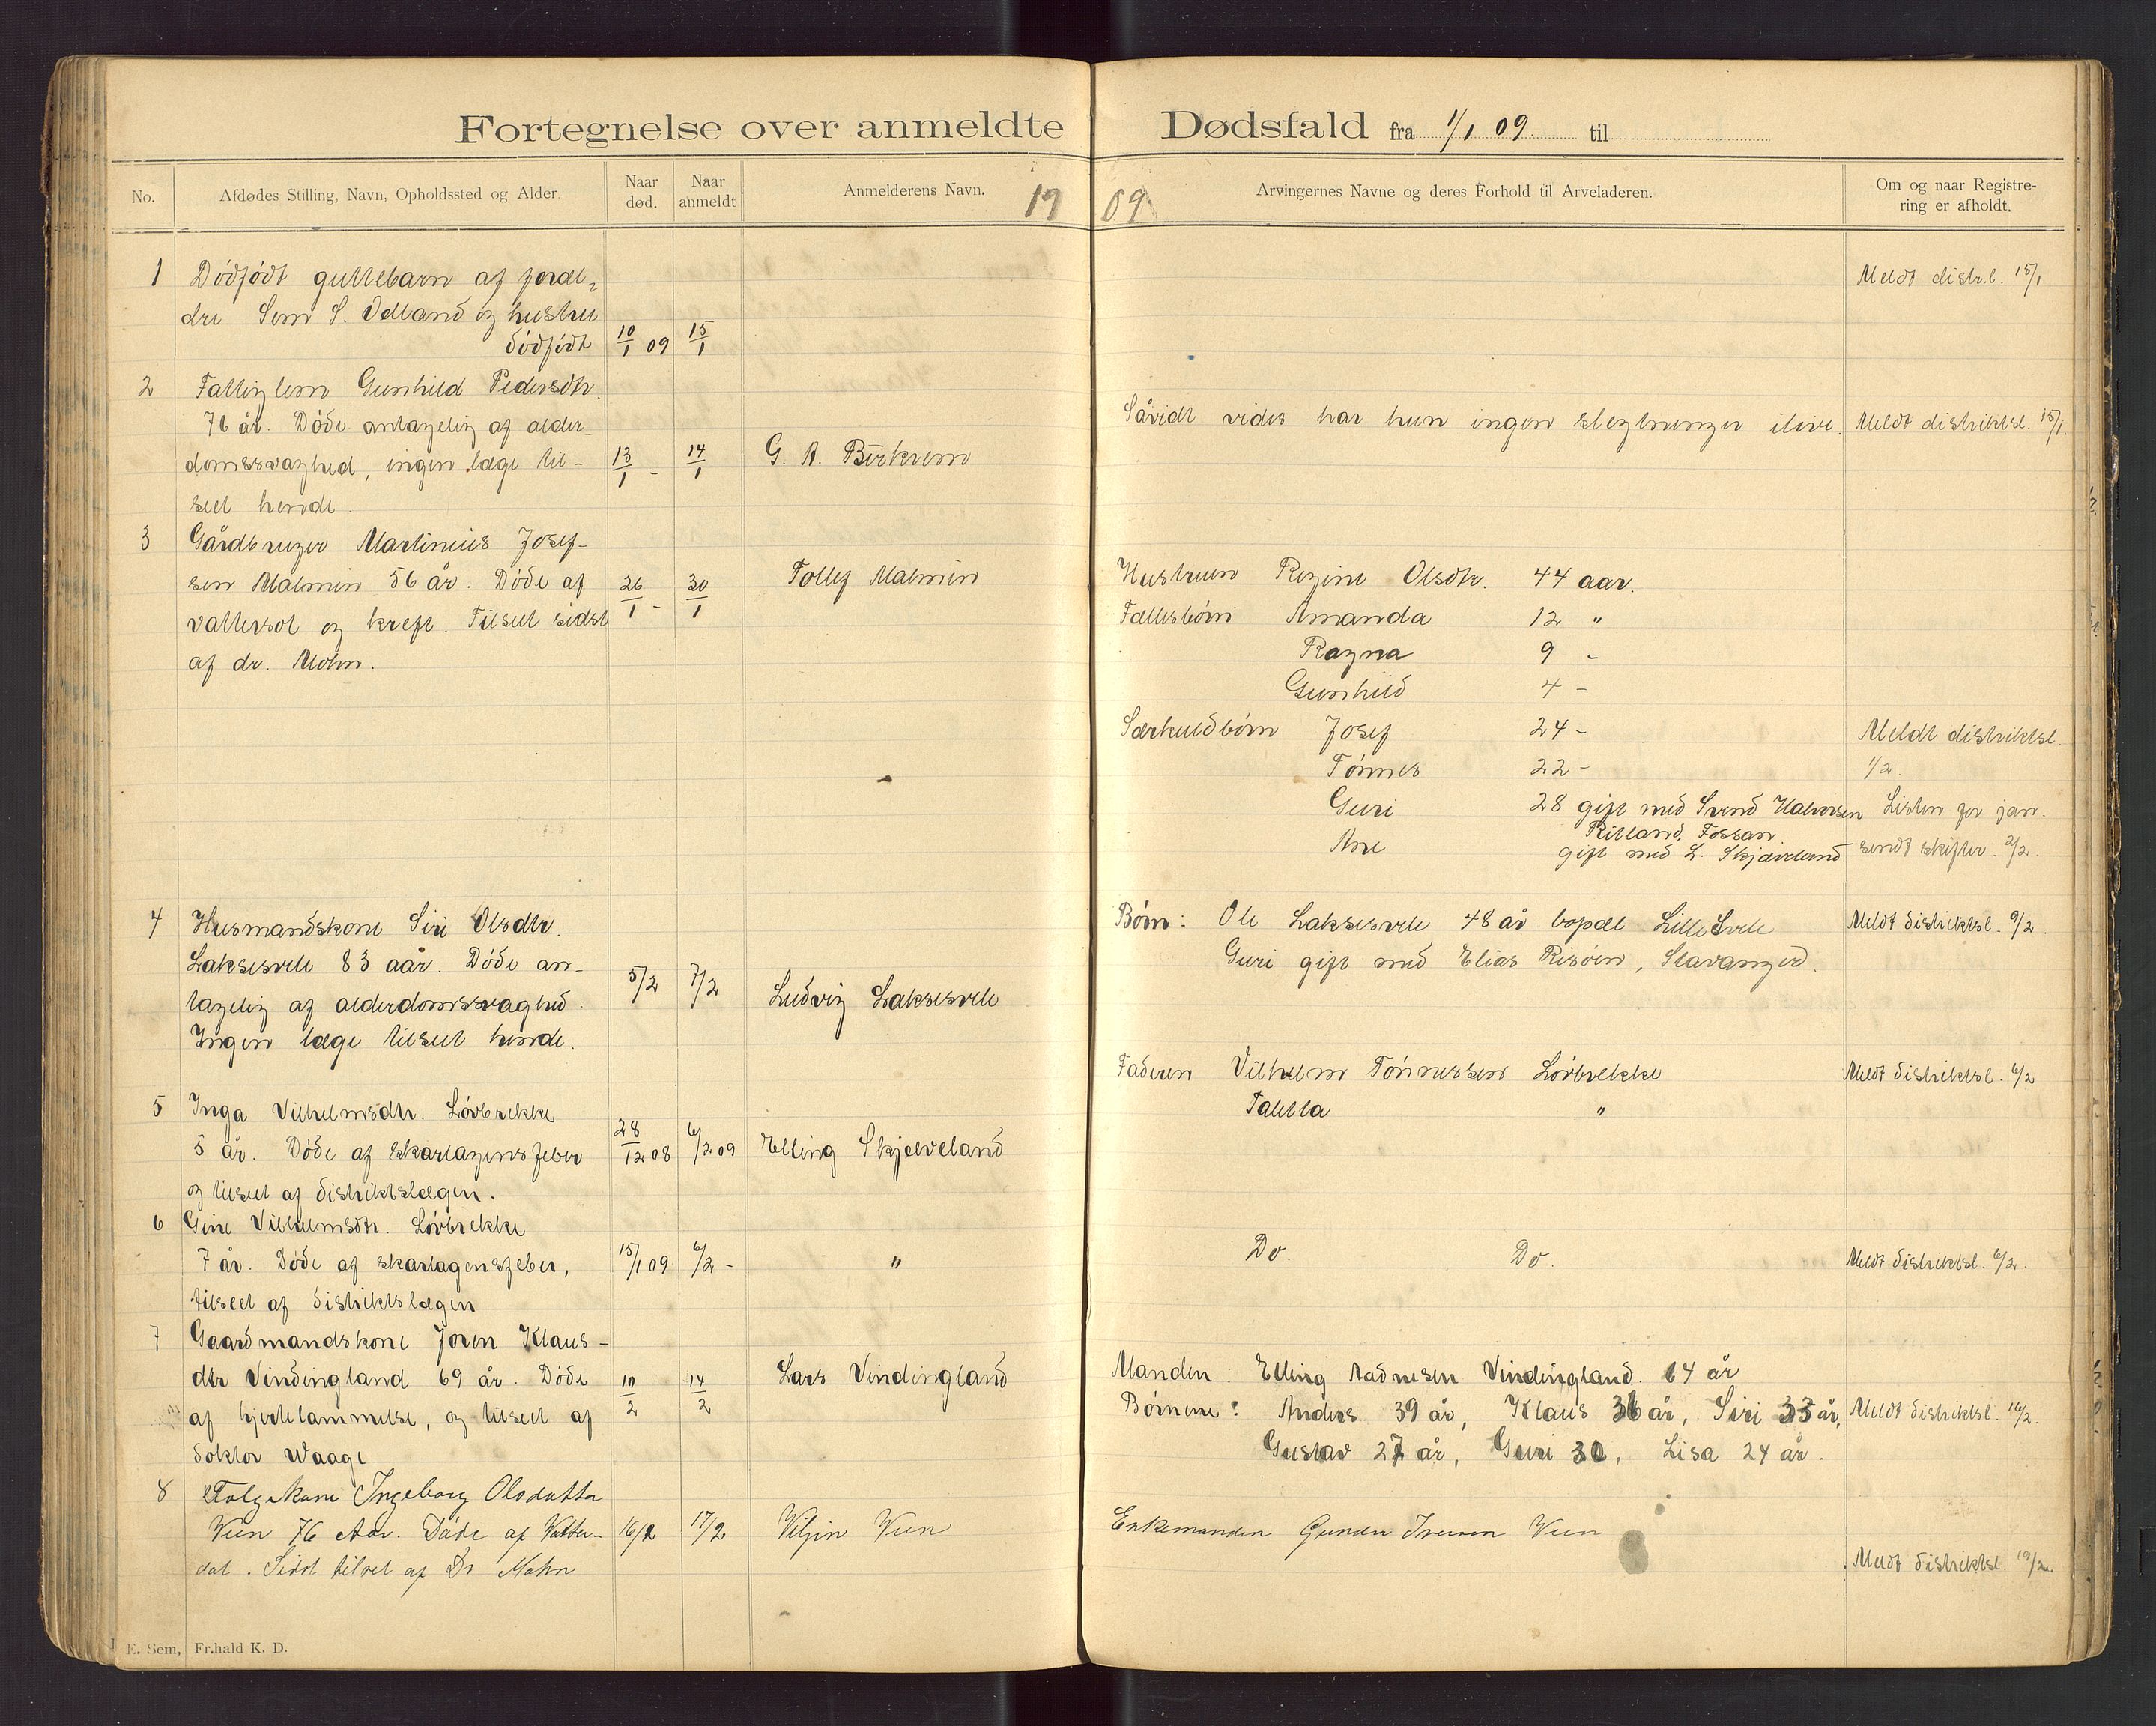 Fortegnelse over anmeldte Dødsfald fra 1/1 09 til
No.
Afdødes Stilling, Navn, Opholdssted og Alder.
Naar død.
Naar anmeldt
Anmelderens Navn.
19 09
Arvingernes Navne og deres Forhold til Arveladeren.
Om og naar Registrering er afholdt.
1 Dödfödt guttebarn af foræl-
dre Sem S. Vdland og hustru
dödfödt 10/1 09 15/1
Meldt distr.l. 15/1
2 Fattiglem Gunhild Pedersdtr.
76 år. Döde antagelig af alder-
domssvaghed, ingen læge til- 13/1 - 14/1 G. A. Birkrem
seet hende.
Såvidt vides har hun ingen slegtninger ilive. Meldt distriktsl. 15/1.
3 Gårdbruger Martinius Josef-
sen Malmin 56 år. Döde af 26/1 - 30/1 Tollef Malmin
vattersot og kreft. Tilseet sidst
af dr. Mohn.
Hustruen Regine Olsdtr. 44 aar.
Fællesbörn Amanda 12 "
Ragna 9 -
Gunhild 4 -
Særkuldbörn Josef 24 - Meldt distriktsl.
Tönnes 22 - 1/2.
Guri 28 gift med Svend Halvorsen Listen for jan.
Ritland, Fossan
Ane gift med L. Skjæveland sendt skifter. 2/2.
4 Husmandskone Siri Olsdtr.
Laksesvele 83 aar. Döde an-
tagelig af alderdomssvaghed. 5/2 7/2 Ludvig Laksesvele
Ingen læge tilseet hende.
Börn: Ole Laksesvele 48 år bopæl Lille Svele Meldt distriktsl. 9/2.
Guri gift med Elias Risöen, Stavanger.
5 Inga Vilhelmsdtr. Lövbrekke
5 år. Döde af skarlagensfeber 28/12 08 6/2 09 Elling Skjæveland
og tilseet af distriktslægen.
Faderen Vilhelm Tönnessen Lövbrekke Meldt distriktsl. 6/2
Taletta "
6 Gine Vilhelmsdtr. Lövbrekke
7 år. Döde af skarlagensfeber, 15/1 09 6/2 - "
tilseet af distriktslægen
Do. Do. Meldt distriktsl. 6/2.
7 Gaardmandskone Joren Klaus-
dtr Vindingland 69 år. Döde 10/2 14/2 Lars Vindingland
af hjertelammelse, og tilseet af
doktor Waage
Manden: Elling Aadnesen Vindingland. 64 år
Börnene: Anders 39 år, Klaus 36 år, Siri 33 år, Meldt distriktsl. 16/2.
Gustav 27 år, Guri 30, Lisa 24 år.
8 Folgekone Ingeborg Olsdatter
Veen 76 Aar. Döde af Vatter- 16/2 17/2 Viljin Veen
sot. Sidst tilseet af Dr Mohn
Enkemanden Gunder Iversen Veen
Meldt distriktsl. 19/2.
E. Sem, Fr.hald K. D.